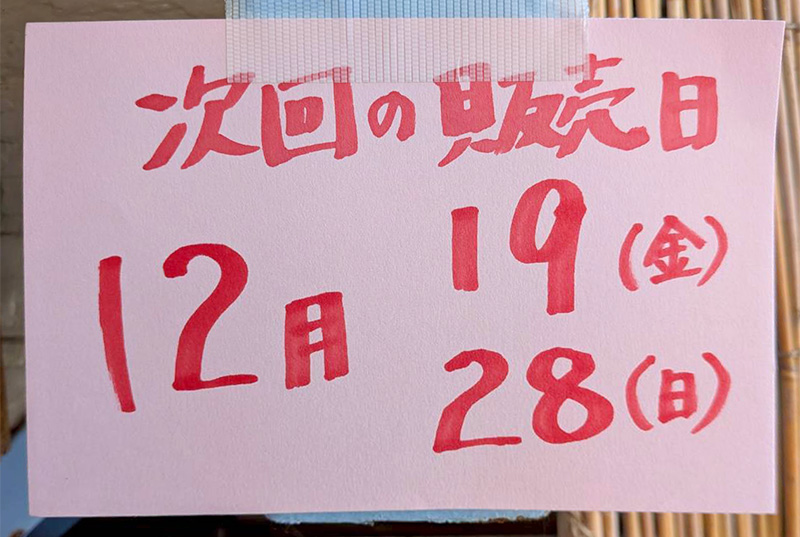 次回の販売日
12月
19(金)
28(日)